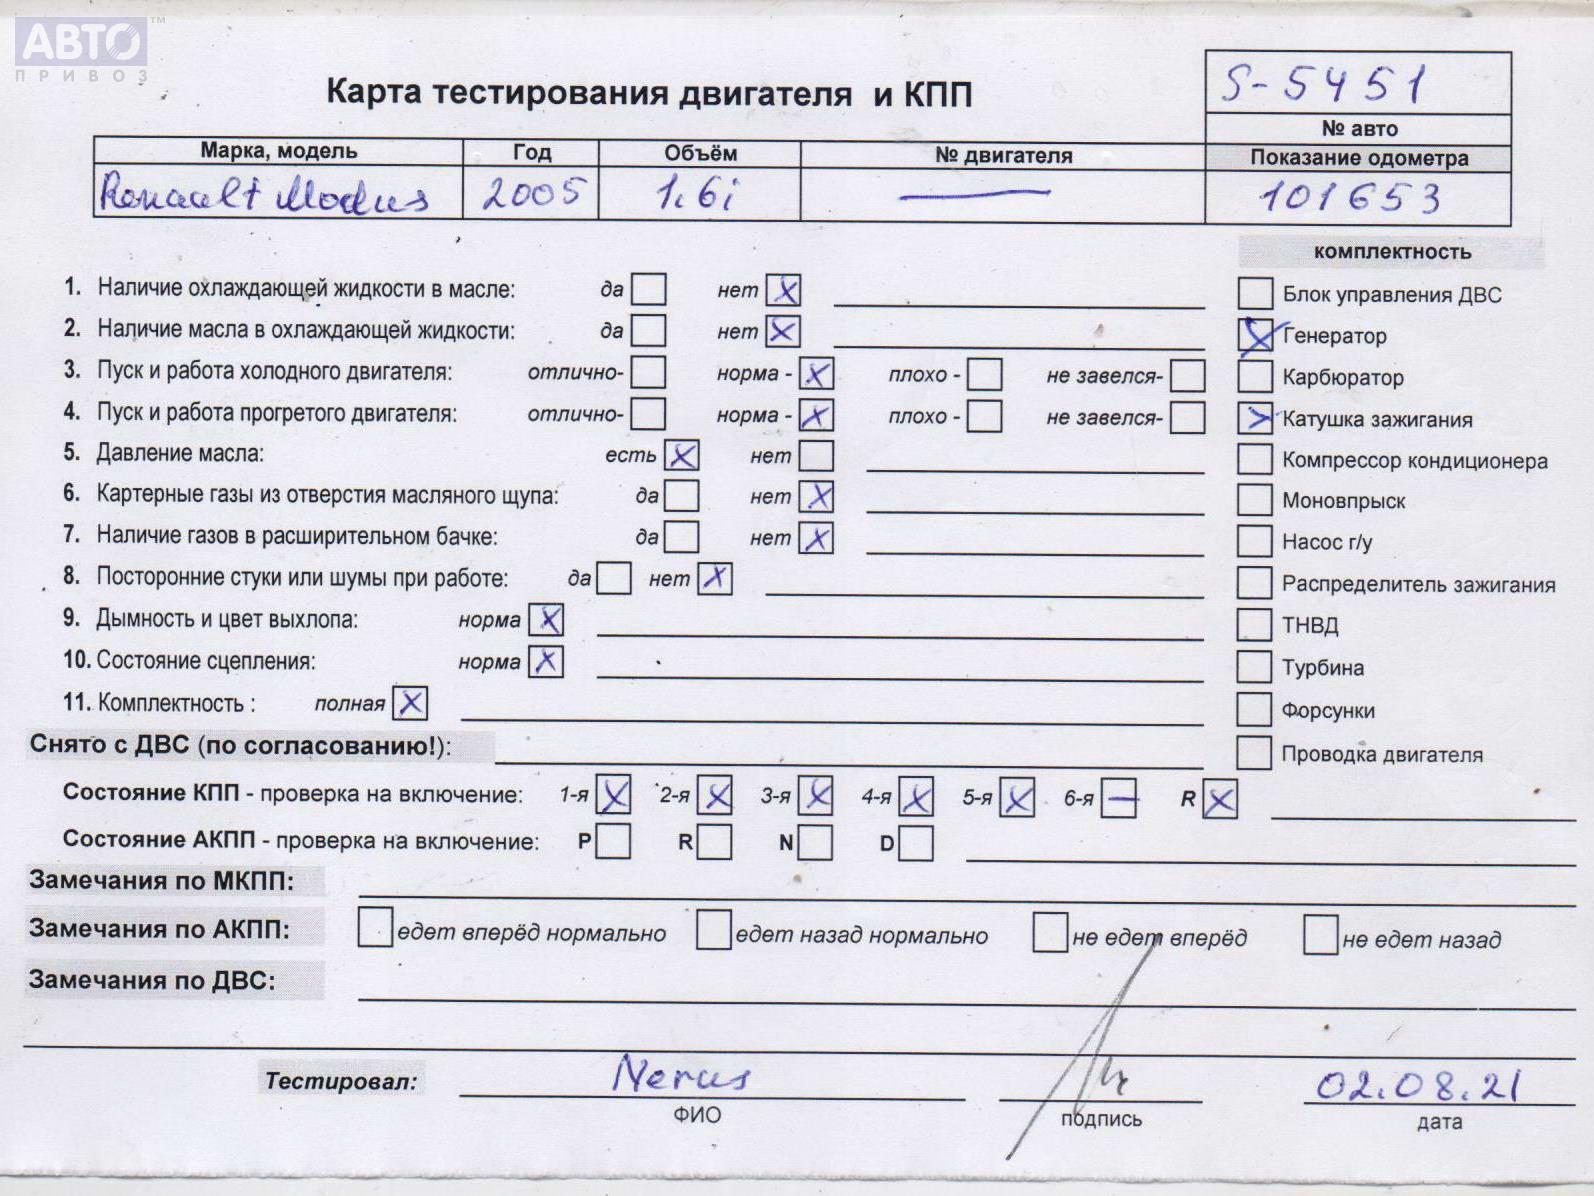 АВТО™
ПРИВОЗ
Карта тестирования двигателя и КПП
S-5451
№ авто
Марка, модель Год Объём № двигателя Показание одометра
Renault Modus 2005 1.6i — 101653
комплектность
1. Наличие охлаждающей жидкости в масле: да нет X
Блок управления ДВС
2. Наличие масла в охлаждающей жидкости: да нет X
X Генератор
3. Пуск и работа холодного двигателя: отлично- норма - X плохо - не завелся-
Карбюратор
4. Пуск и работа прогретого двигателя: отлично- норма - X плохо - не завелся-
Катушка зажигания
5. Давление масла: есть X нет
Компрессор кондиционера
6. Картерные газы из отверстия масляного щупа: да нет X
Моновпрыск
7. Наличие газов в расширительном бачке: да нет X
Насос г/у
8. Посторонние стуки или шумы при работе: да нет X
Распределитель зажигания
9. Дымность и цвет выхлопа: норма X
ТНВД
10. Состояние сцепления: норма X
Турбина
11. Комплектность : полная X
Форсунки
Снято с ДВС (по согласованию!):
Проводка двигателя
Состояние КПП - проверка на включение: 1-я X 2-я X 3-я X 4-я X 5-я X 6-я — R X
Состояние АКПП - проверка на включение: P R N D
Замечания по МКПП:
Замечания по АКПП: едет вперёд нормально едет назад нормально не едет вперёд не едет назад
Замечания по ДВС:
Тестировал: 02.08.21
ФИО подпись дата